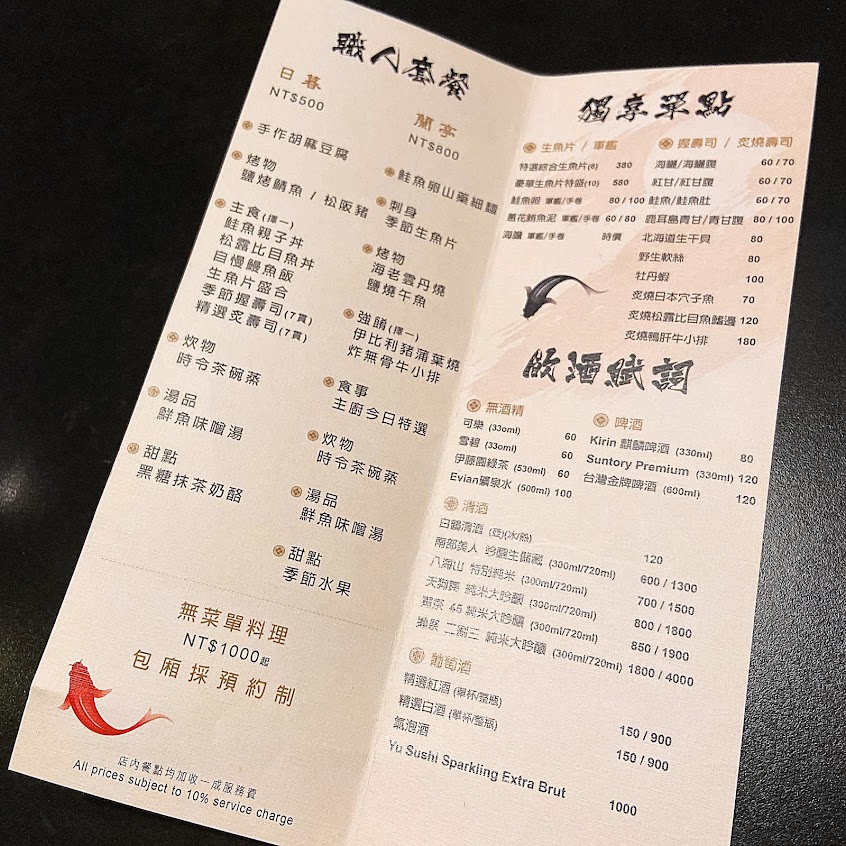 職人套餐
日暮
NT$500
手作胡麻豆腐
烤物
鹽烤鯖魚 / 松阪豬
主食(擇一)
鮭魚親子丼
松露比目魚丼
自慢鰻魚飯
生魚片盛合
季節握壽司(7貫)
精選炙壽司(7貫)
炊物
時令茶碗蒸
湯品
鮮魚味噌湯
甜點
黑糖抹茶奶酪
蘭亭
NT$800
鮭魚卵山藥細麵
刺身
季節生魚片
烤物
海老雲丹燒
鹽燒午魚
強餚(擇一)
伊比利豬蒲葉燒
炸無骨牛小排
食事
主廚今日特選
炊物
時令茶碗蒸
湯品
鮮魚味噌湯
甜點
季節水果
無菜單料理
NT$1000起
包廂採預約制
店內餐點均加收一成服務費
All prices subject to 10% service charge
獨享單點
生魚片 / 軍艦
特選綜合生魚片(6) 380
豪華生魚片特盛(10) 580
鮭魚卵 軍艦/手卷 80 / 100
蔥花鮪魚泥 軍艦/手卷 60 / 80
海膽 軍艦/手卷 時價
握壽司 / 炙燒壽司
海鱺/海鱺腹 60 / 70
紅甘/紅甘腹 60 / 70
鮭魚/鮭魚肚 60 / 70
鹿耳島青甘/青甘腹 80 / 100
北海道生干貝 80
野生軟絲 80
牡丹蝦 100
炙燒日本穴子魚 70
炙燒松露比目魚鰭邊 120
炙燒鴨肝牛小排 180
飲酒賦詞
無酒精
可樂 (330ml) 60
雪碧 (330ml) 60
伊藤園綠茶 (530ml) 60
Evian礦泉水 (500ml) 100
啤酒
Kirin 麒麟啤酒 (330ml) 80
Suntory Premium (330ml) 120
台灣金牌啤酒 (600ml) 120
清酒
白鶴清酒 (冰/熱) 120
南部美人 吟釀生儲藏 (300ml/720ml) 600 / 1300
八海山 特別純米 (300ml/720ml) 700 / 1500
天狗舞 純米大吟釀 (300ml/720ml) 800 / 1800
獺祭 45 純米大吟釀 (300ml/720ml) 850 / 1900
獺祭 二割三 純米大吟釀 (300ml/720ml) 1800 / 4000
葡萄酒
精選紅酒 (單杯/整瓶) 150 / 900
精選白酒 (單杯/整瓶) 150 / 900
氣泡酒
Yu Sushi Sparkling Extra Brut 1000